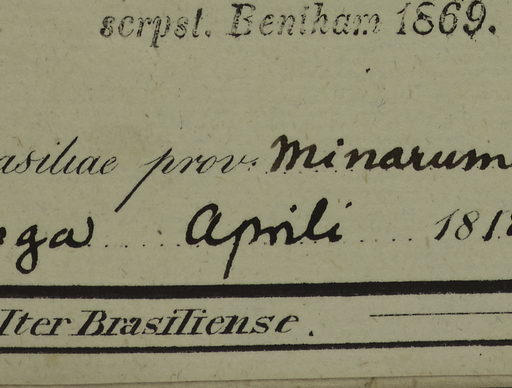 scrpst. Bentham 1869.
asiliae prov. Minarum
ga Aprili 181
Iter Brasiliense.